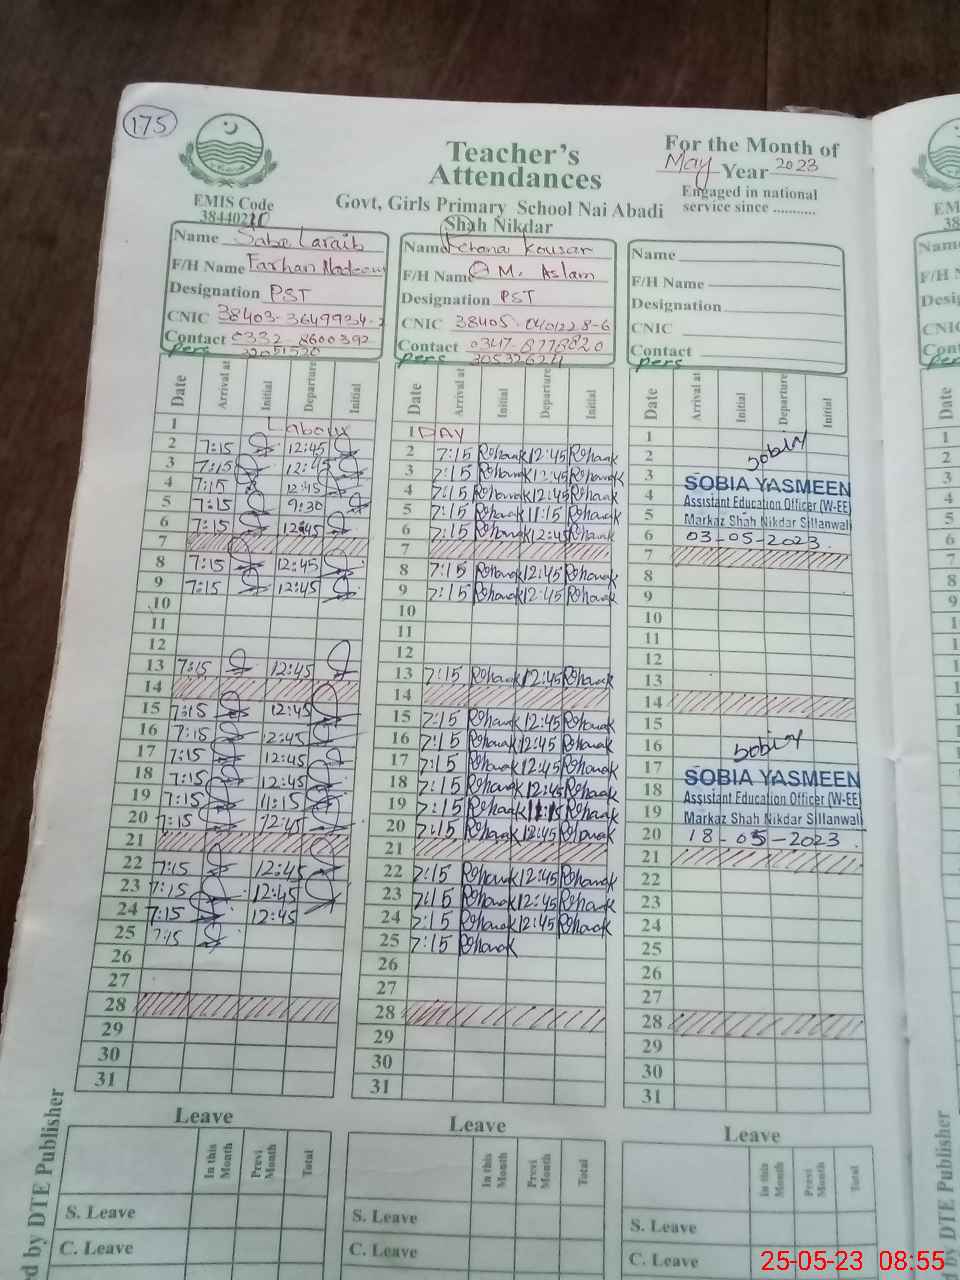 175
Teacher's
Attendances
For the Month of
May Year 2023
Engaged in national
service since ...........
EMIS Code
38440210
Govt, Girls Primary School Nai Abadi
Shah Nikdar
Name Saba Laraib
F/H Name Farhan Nadeem
Designation PST
CNIC 38403-3649934-2
Contact 0332-8600392
Pers
Name Rehana Kousar
F/H Name M. Aslam
Designation PST
CNIC 38405-0401228-6
Contact 0347-8778820
Pers
Name
F/H Name
Designation
CNIC
Contact
Pers
Date Arrival at Initial Departure Initial
1 Labour
2 7:15 12:45
3 7:15 12:45
4 7:15 12:45
5 7:15 9:30
6 7:15 12:45
7
8 7:15 12:45
9 7:15 12:45
10
11
12
13 7:15 12:45
14
15 7:15 12:45
16 7:15 12:45
17 7:15 12:45
18 7:15 12:45
19 7:15 11:15
20 7:15 12:45
21
22 7:15 12:45
23 7:15 12:45
24 7:15 12:45
25 7:15
26
27
28
29
30
31
Date Arrival at Initial Departure Initial
1 DAY
2 7:15 12:45
3 7:15 12:45
4 7:15 12:45
5 7:15 11:15
6 7:15 12:45
7
8 7:15 12:45
9 7:15 12:45
10
11
12
13 7:15 12:45
14
15 7:15 12:45
16 7:15 12:45
17 7:15 12:45
18 7:15 12:45
19 7:15 11:15
20 7:15 12:45
21
22 7:15 12:45
23 7:15 12:45
24 7:15 12:45
25 7:15
26
27
28
29
30
31
Date Arrival at Initial Departure Initial
1
2
3
SOBIA YASMEEN
4 Assistant Education Officer (W-EE)
5 Markaz Shah Nikdar Sillanwali
6 03-05-2023
7
8
9
10
11
12
13
14
15
16
17
SOBIA YASMEEN
18 Assistant Education Officer (W-EE)
19 Markaz Shah Nikdar Sillanwali
20 18-05-2023
21
22
23
24
25
26
27
28
29
30
31
Leave
In this Month Previ Month Total
S. Leave
C. Leave
Leave
In this Month Previ Month Total
S. Leave
C. Leave
Leave
In this Month Previ Month Total
S. Leave
C. Leave
d by DTE Publisher
25-05-23 08:55